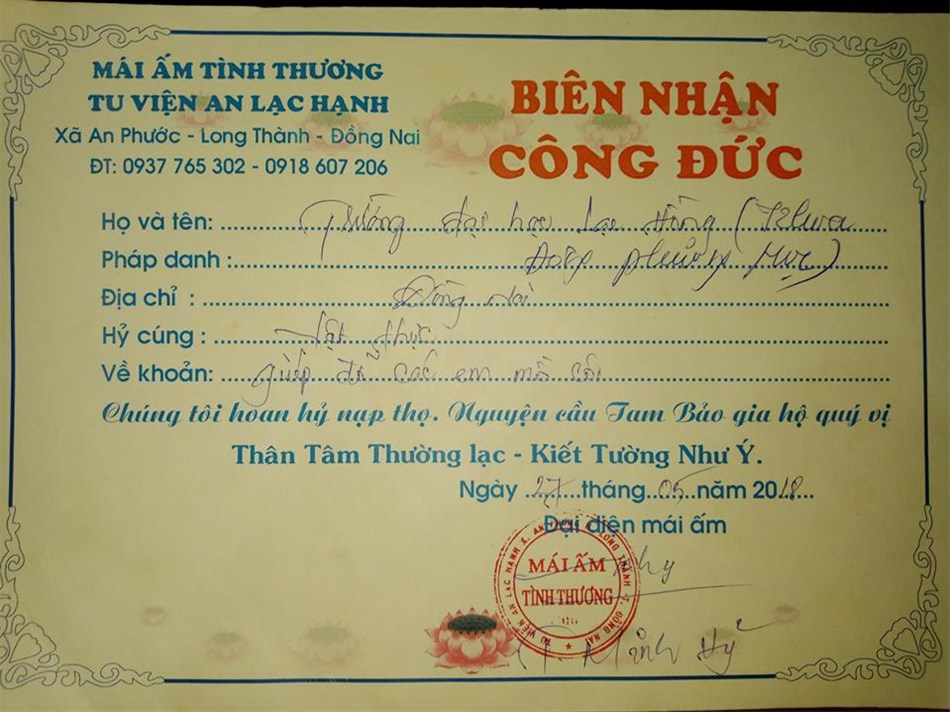 MÁI ẤM TÌNH THƯƠNG
TU VIỆN AN LẠC HẠNH
Xã An Phước - Long Thành - Đồng Nai
ĐT: 0937 765 302 - 0918 607 206
BIÊN NHẬN
CÔNG ĐỨC
Họ và tên: Trường đại học Lạc Hồng (Khoa
Pháp danh : Đông phương học)
Địa chỉ : Đồng Nai
Hỷ cúng : Vật thực
Về khoản: giúp đỡ các em mồ côi
Chúng tôi hoan hỷ nạp thọ. Nguyện cầu Tam Bảo gia hộ quý vị
Thân Tâm Thường lạc - Kiết Tường Như Ý.
Ngày 27 tháng 05 năm 2018
Đại diện mái ấm
MÁI ẤM
TÌNH THƯƠNG
TU VIỆN AN LẠC HẠNH X. AN LONG THÀNH T. ĐỒNG NAI
Minh Hỷ